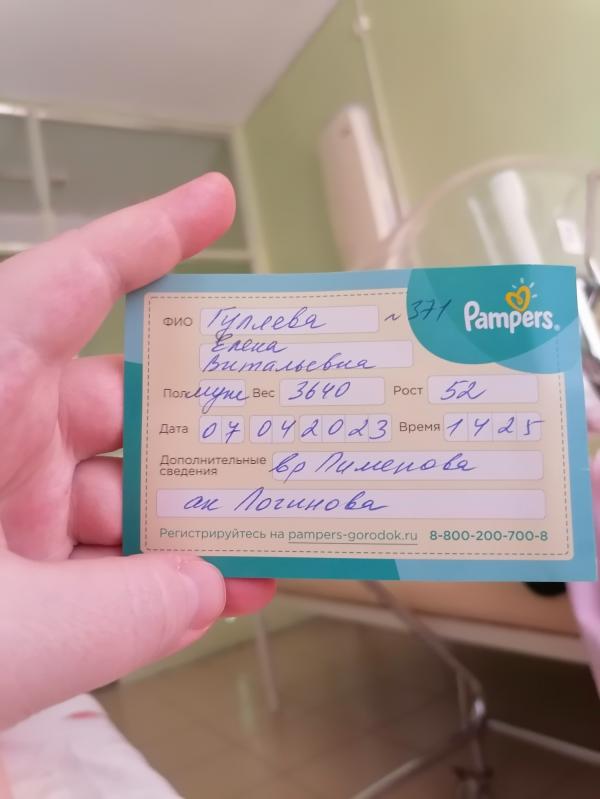 ФИО Гуляева ~ 371 Pampers.
Елена
Витальевна
Пол муж Вес 3640 Рост 52
Дата 07 04 2023 Время 1425
Дополнительные сведения вр Пименова
ак Логинова
Регистрируйтесь на pampers-gorodok.ru 8-800-200-700-8